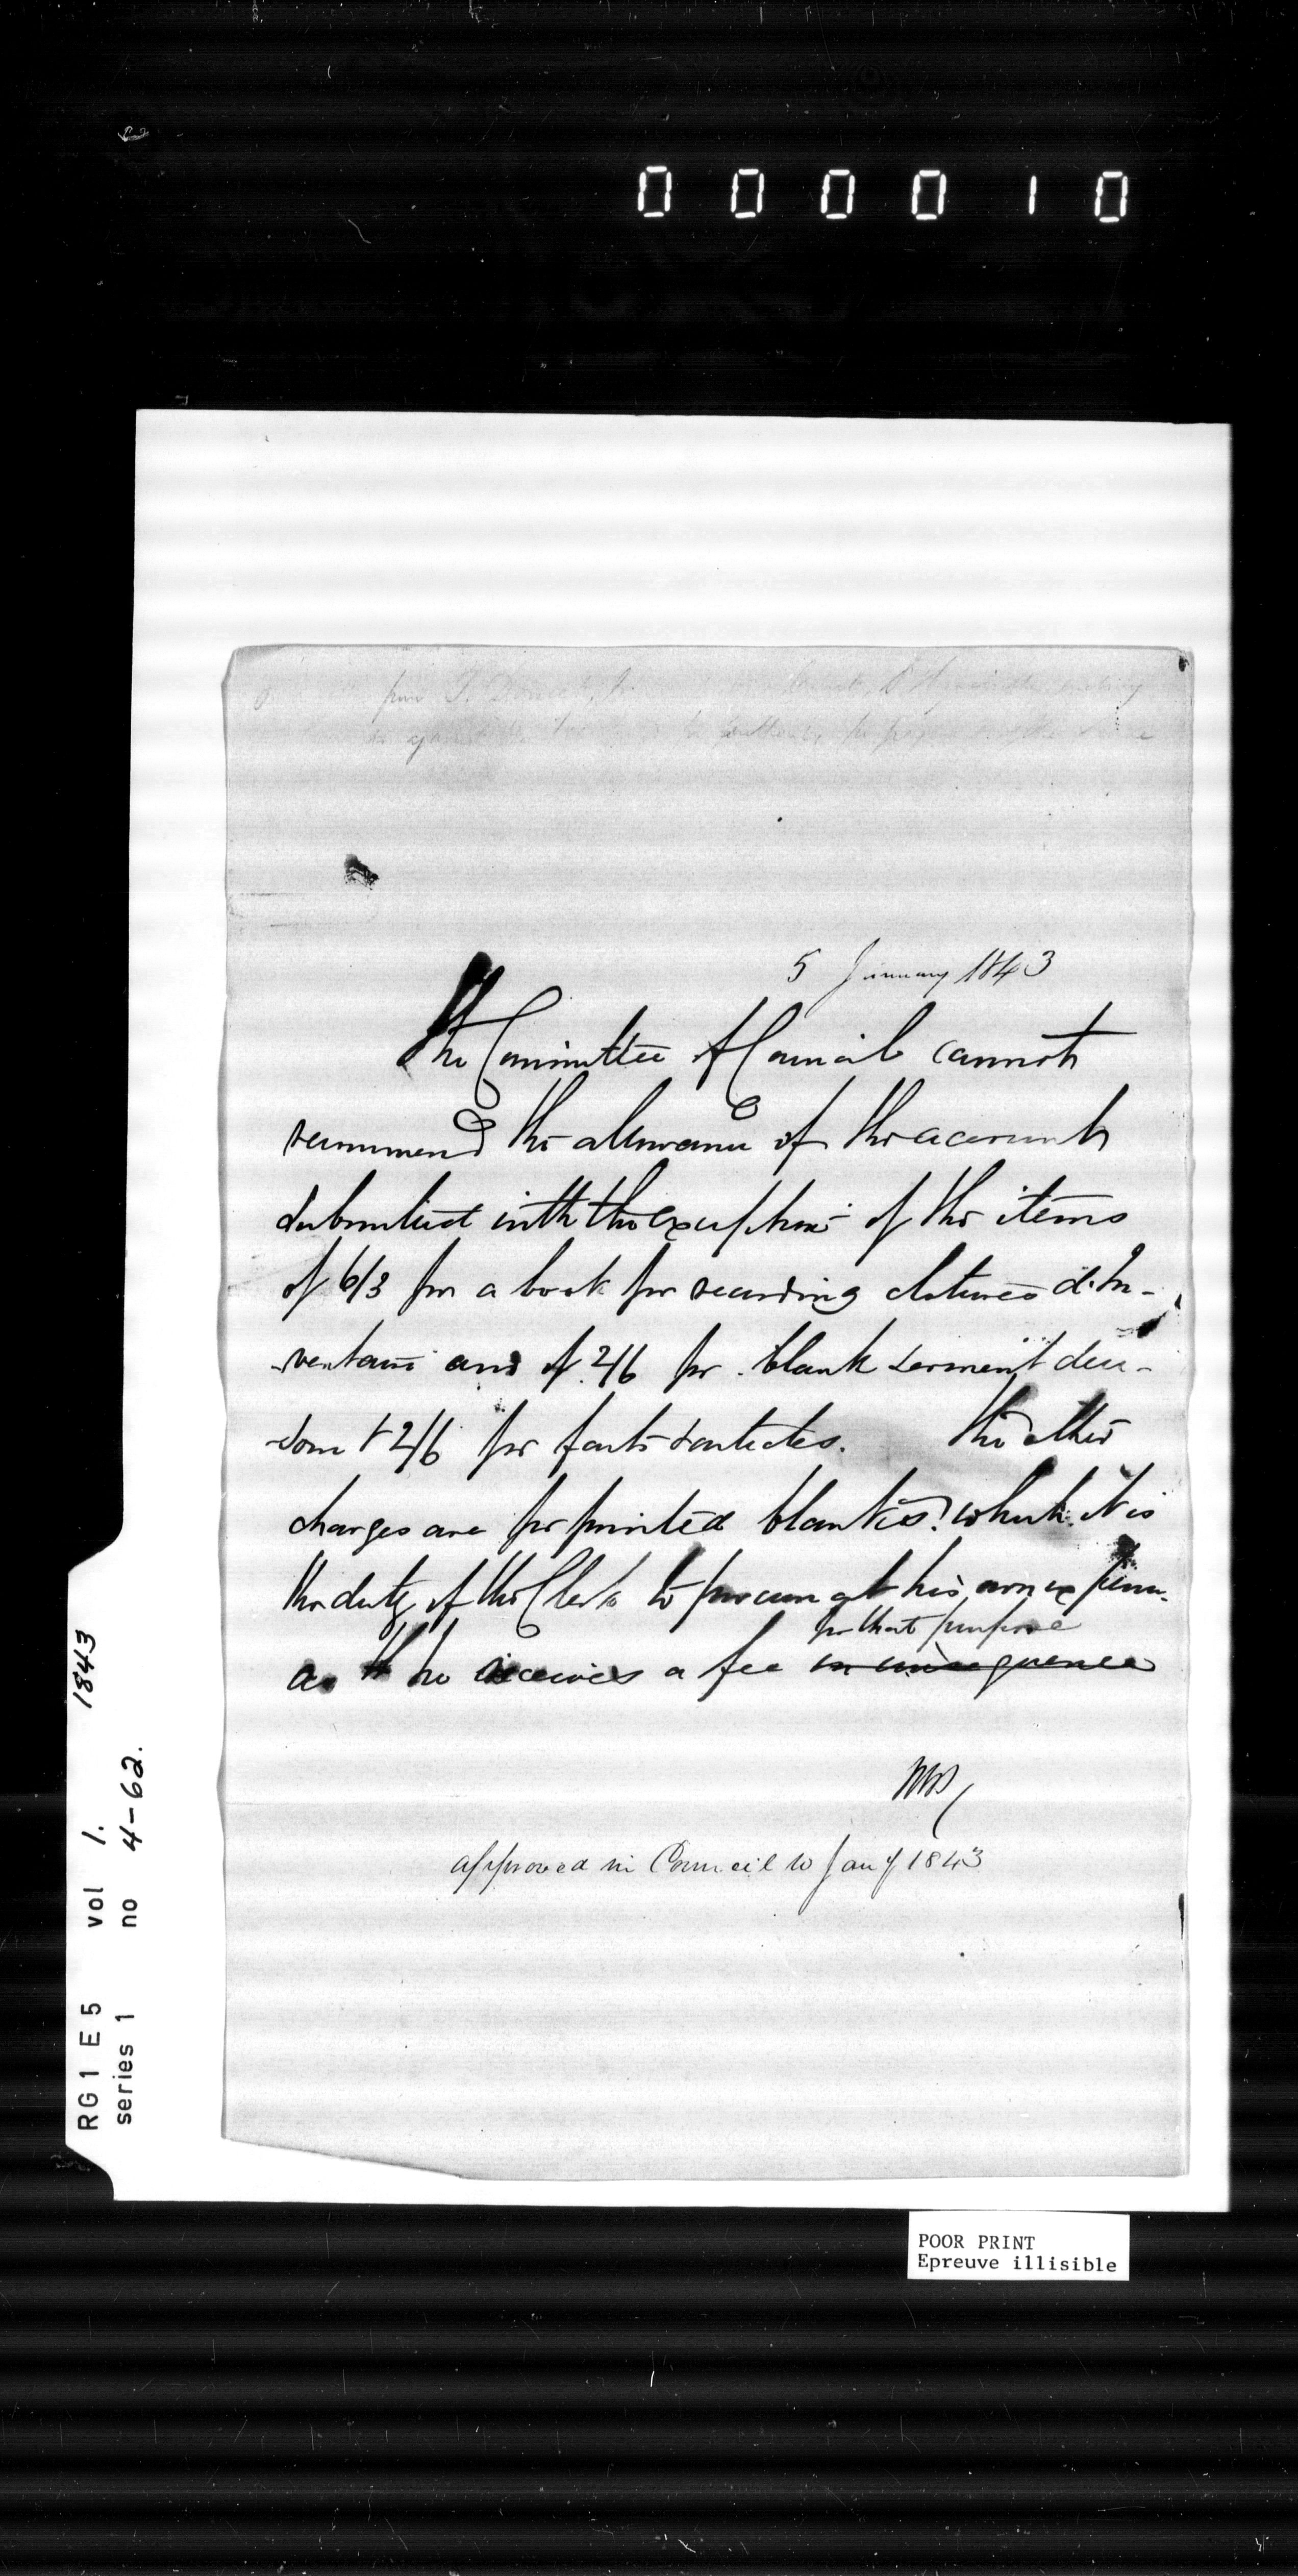 000010
5 January 1843
The Committee of Council cannot
recommend the allowance of the accounts
submitted with the exception of the items
of 6/3 for a book for recording clotures d'In-
-ventaire and of 2/6 for blank serment deci-
-soire & 2/6 for faits & articles. The other
charges are for printed blanks which it is
the duty of the Clerk to procure at his own expense
for that purpose
as he receives a fee in consequence
approved in Council 10 Jany 1843
RG1 E5 vol 1. 1843
series 1 no 4-62.
POOR PRINT
Epreuve illisible